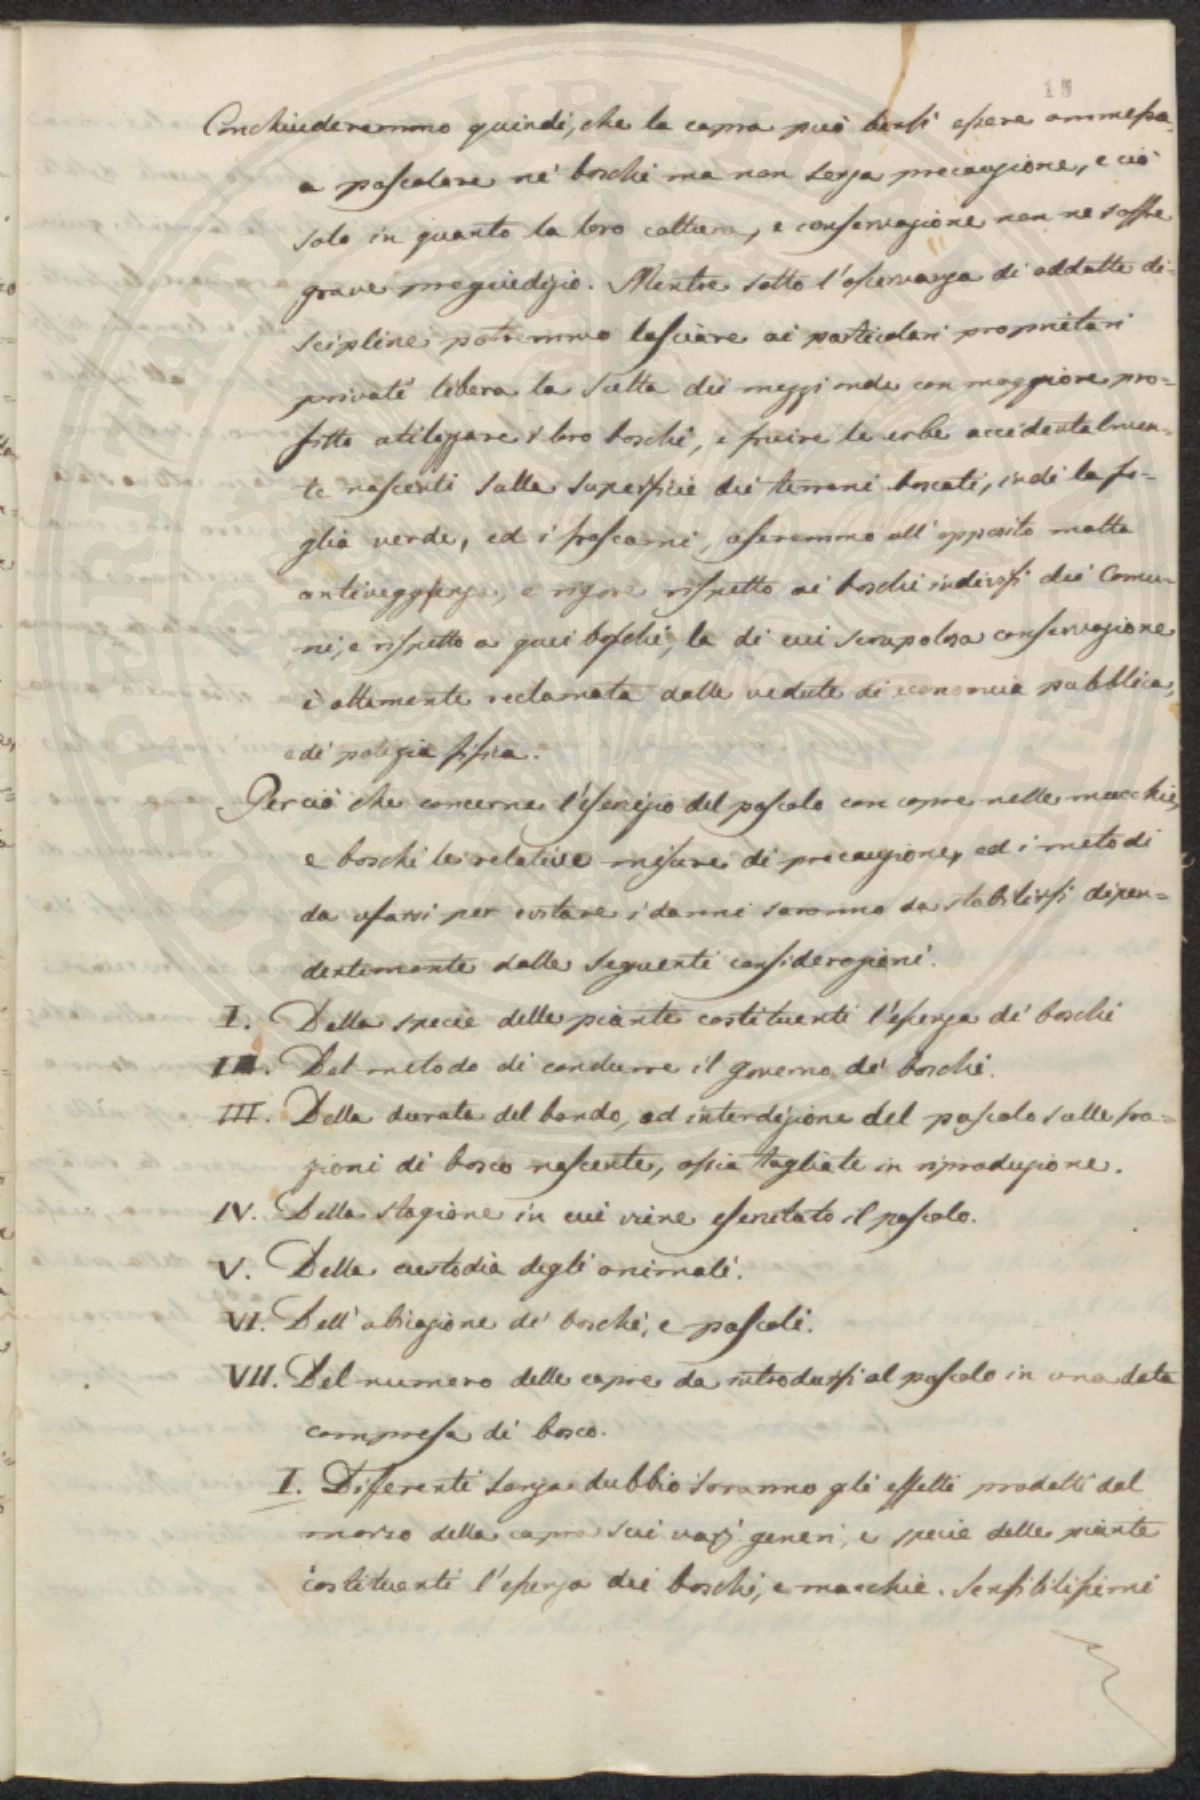 15
Conchiuderemmo quindi, che la capra può bensì essere ammessa
a pascolare ne' boschi ma non senza precauzione, e ciò
solo in quanto la loro coltura, e conservazione non ne soffre
grave pregiudizio. Mentre sotto l'osservanza di addatte di-
scipline potremmo lasciare ai particolari proprietari
privati libera la scelta dei mezzi onde con maggiore pro=
fitto utilizzare i loro boschi, e fruire le erbe accidentalmen=
te nascenti sulla superficie dei terreni boscati, indi la fo-
glia verde, ed i frascami, useremmo all'opposto molta
antiveggenza, e rigore rispetto ai boschi indivisi dei Comu-
ni, e rispetto a quei boschi, la di cui scrupolosa conservazione
è altamente reclamata dalle vedute di economia pubblica,
e di polizia fisica.
Perciò che concerne l'esercizio del pascolo con capre nelle macchie,
e boschi le relative misure di precauzione, ed i metodi
da usarsi per evitare i danni saranno da stabilirsi dipen=
dentemente dalle seguenti considerazioni.
I. Della specie delle piante costituenti l'essenza de' boschi
II. Del metodo di condurre il governo de' boschi.
III. Della durata del bando, ed interdizione del pascolo sulle fra=
zioni di bosco nascente, ossia tagliate in riproduzione.
IV. Della stagione in cui viene esercitato il pascolo.
V. Della custodia degli animali.
VI. Dell'ubicazione de' boschi, e pascoli.
VII. Del numero delle capre da introdursi al pascolo in una data
compresa di bosco.
I. Differenti senza dubbio saranno gli effetti prodotti dal
morso della capra sui varj generi, e specie delle piante
costituenti l'essenza dei boschi, e macchie. Sensibilissimi